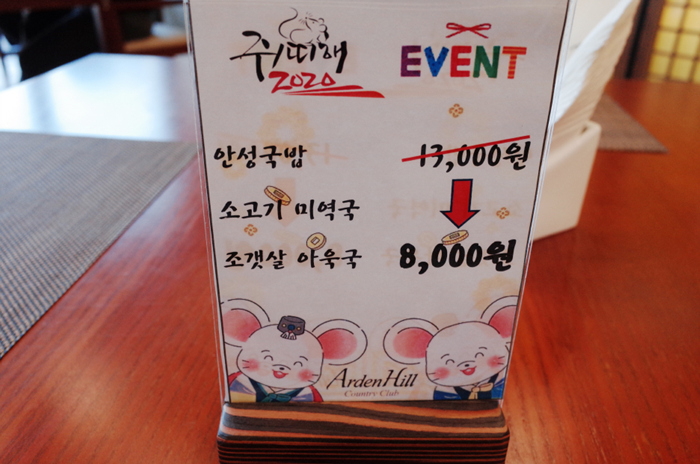 쥐띠해
2020
EVENT
안성국밥
13,000원
소고기 미역국
조갯살 아욱국
8,000원
ArdenHill
Country Club